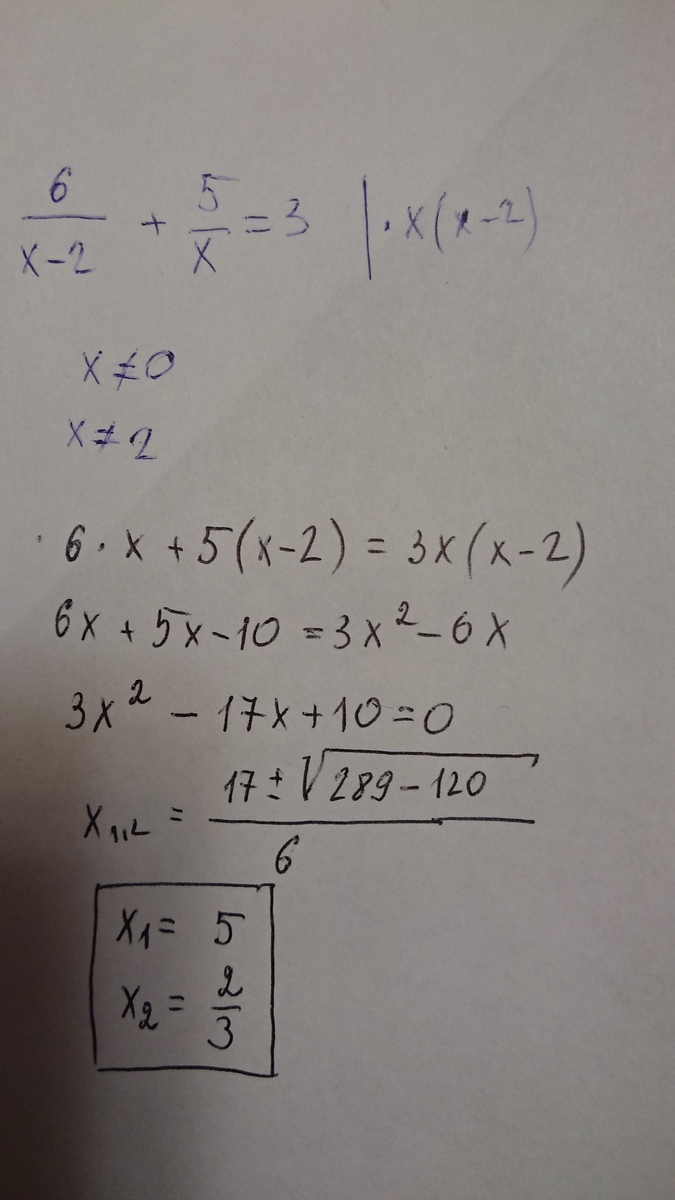 6/(x-2) + 5/x = 3 | · x(x-2)
x ≠ 0
x ≠ 2
6 · x + 5(x-2) = 3x(x-2)
6x + 5x - 10 = 3x² - 6x
3x² - 17x + 10 = 0
x₁,₂ = (17 ± √(289 - 120))/6
x₁ = 5
x₂ = 2/3